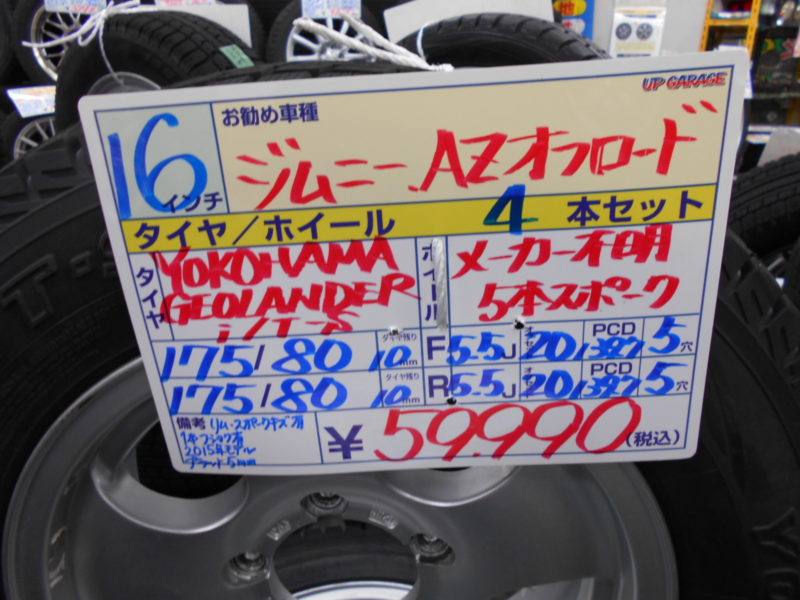 UP GARAGE
16インチ
お勧め車種
ジムニー.AZオフロード
タイヤ/ホイール 4 本セット
タイヤ
YOKOHAMA
GEOLANDER
I/T-S
ホイール
メーカー不明
5本スポーク
175/80 タイヤ残り 10mm F5.5J オフセット 20 PCD 139.7 5穴
175/80 タイヤ残り 10mm R5.5J オフセット 20 PCD 139.7 5穴
備考 リム・スポークキズ有
2015年モデル
¥59.990(税込)